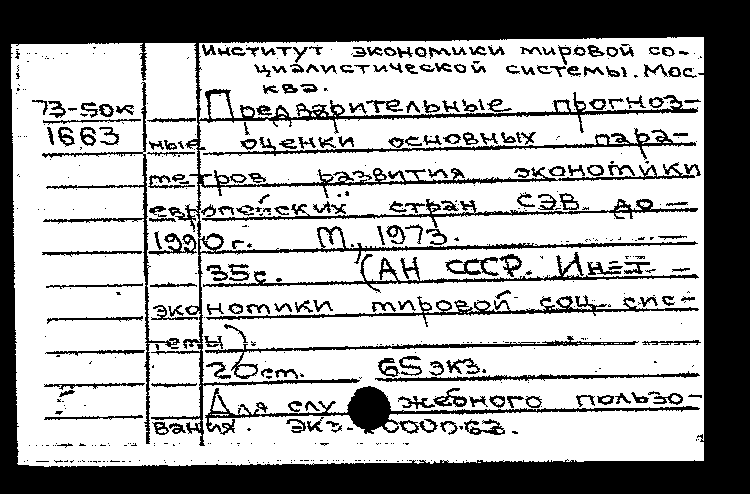 институт экономики мировой со-
циалистической системы. Мос-
ква.
73-50к Предварительные прогноз-
1663 ные оценки основных пара-
метров развития экономики
европейских стран СЭВ до
1990 г. М., 1973.
35с. (АН СССР. Инст
экономики мировой соц. сис-
темы).
20см. 65 экз.
Для служебного пользо-
вания. Экз. 000063.